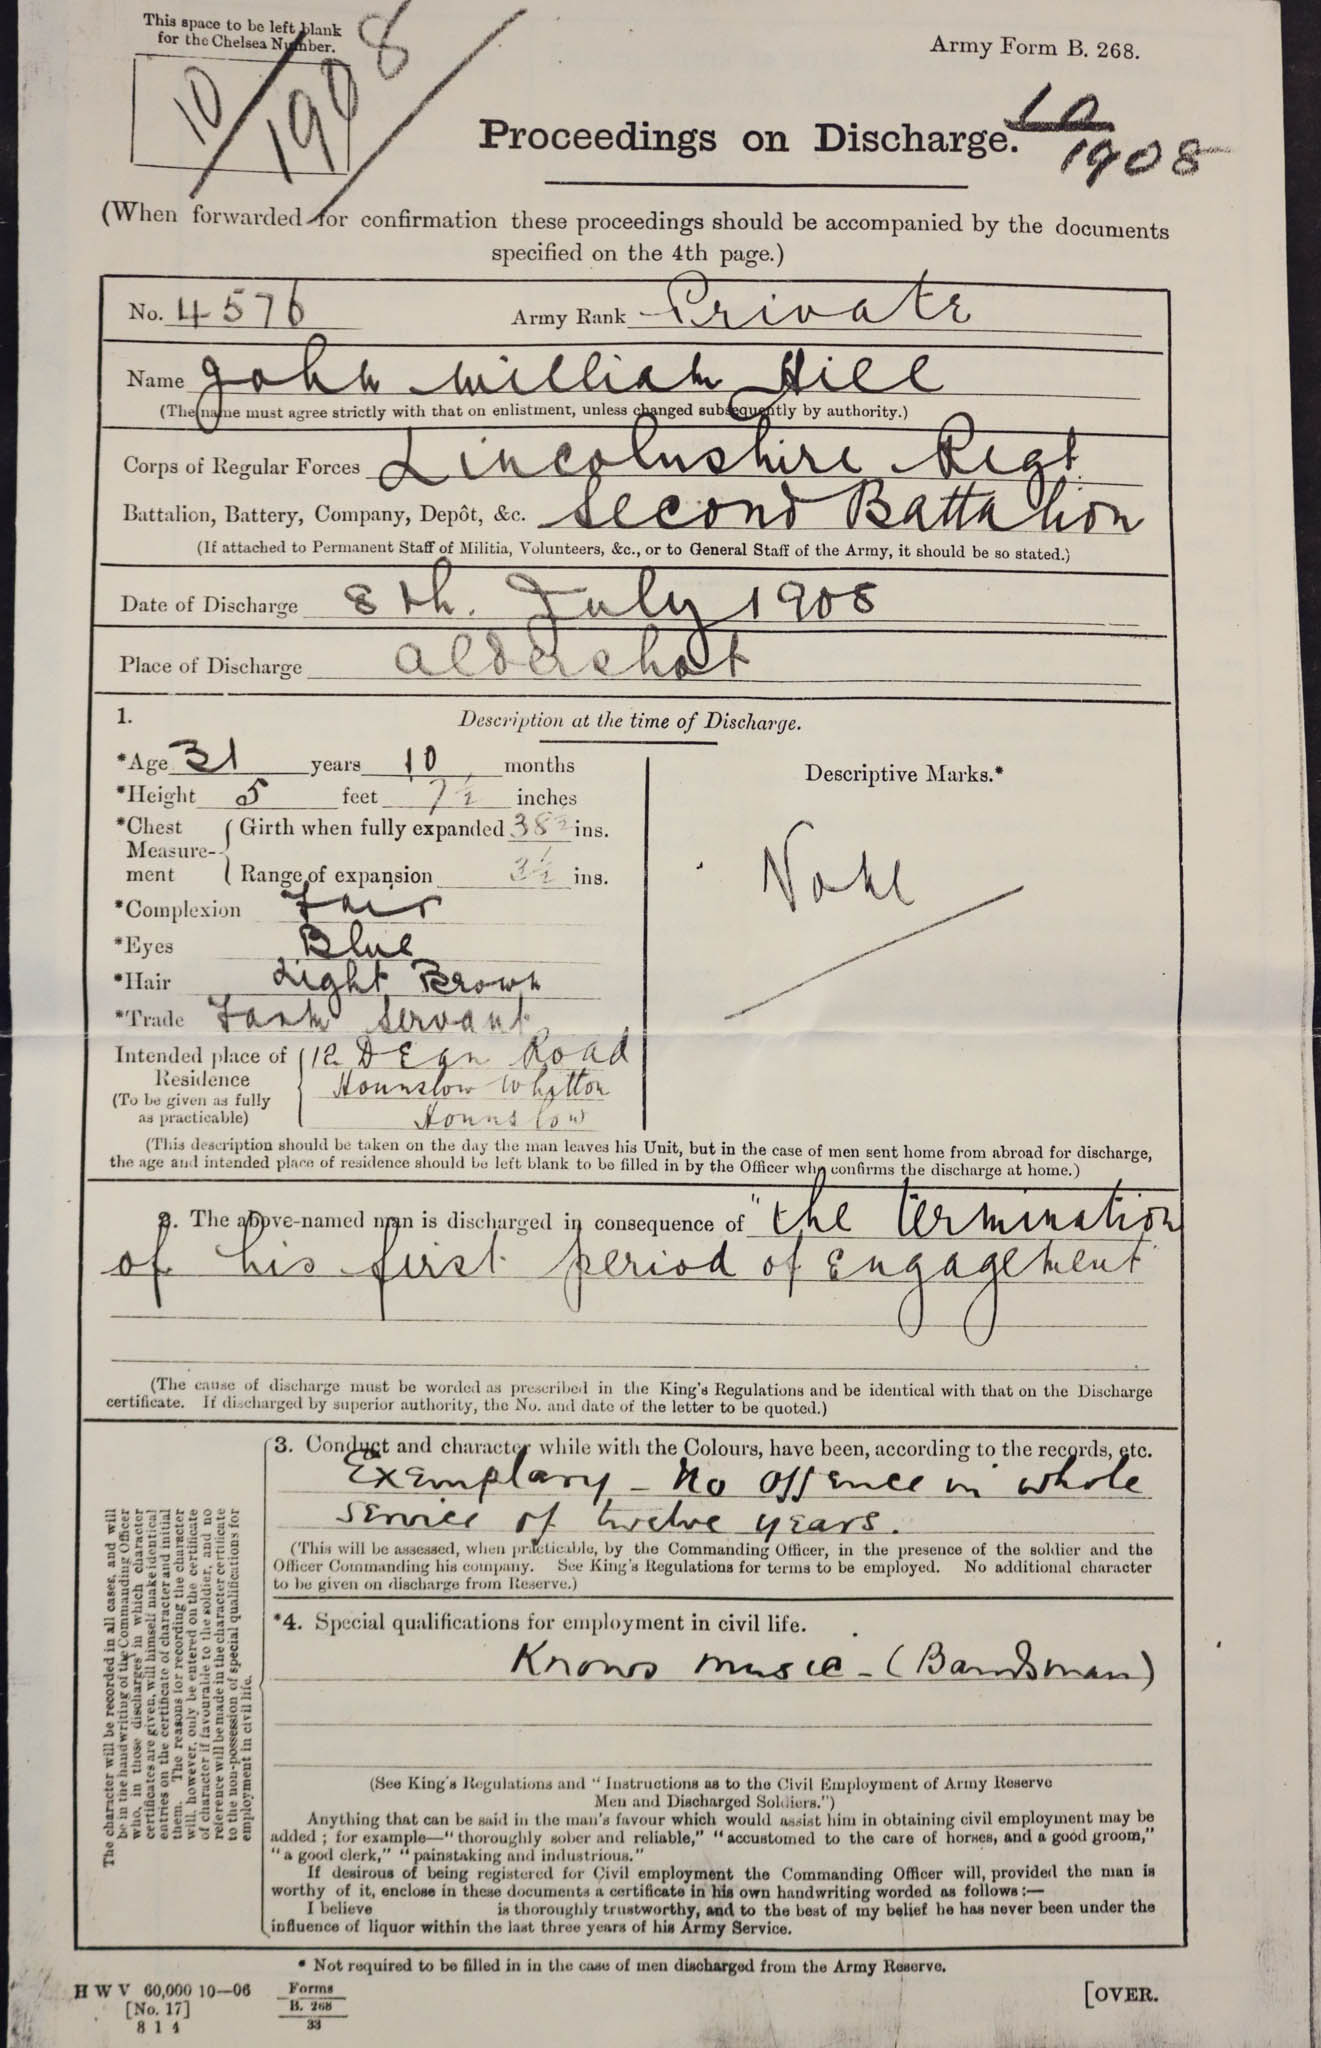 This space to be left blank
for the Chelsea Number.
10
1908
Army Form B. 268.
Proceedings on Discharge.
10
1908
(When forwarded for confirmation these proceedings should be accompanied by the documents
specified on the 4th page.)
No. 4576 Army Rank Private
Name John William Hill
(The name must agree strictly with that on enlistment, unless changed subsequently by authority.)
Corps of Regular Forces Lincolnshire Regt.
Battalion, Battery, Company, Depôt, &c. Second Battalion
(If attached to Permanent Staff of Militia, Volunteers, &c., or to General Staff of the Army, it should be so stated.)
Date of Discharge 8th. July 1908
Place of Discharge Aldershot
1. Description at the time of Discharge.
*Age 31 years 10 months
*Height 5 feet 7½ inches
*Chest Measure-ment { Girth when fully expanded 38½ ins.
Range of expansion 3½ ins.
*Complexion Fair
*Eyes Blue
*Hair Light Brown
*Trade Farm Servant
Intended place of Residence
(To be given as fully
as practicable)
12 Dean Road
Hounslow Whitton
Hounslow
Descriptive Marks.*
None
(This description should be taken on the day the man leaves his Unit, but in the case of men sent home from abroad for discharge,
the age and intended place of residence should be left blank to be filled in by the Officer who confirms the discharge at home.)
2. The above-named man is discharged in consequence of "the termination
of his first period of Engagement
(The cause of discharge must be worded as prescribed in the King's Regulations and be identical with that on the Discharge
certificate. If discharged by superior authority, the No. and date of the letter to be quoted.)
The character will be recorded in all cases, and will
be in the handwriting of the Commanding Officer
who, in those discharges in which character
certificates are given, will himself make identical
entries on the certificate of character and initial
them. The reasons for recording the character
will, however, only be entered on the certificate
of character if favourable to the soldier, and no
reference will be made in the character certificate
to the non-possession of special qualifications for
employment in civil life.
3. Conduct and character while with the Colours, have been, according to the records, etc.
Exemplary - No offence in whole
service of twelve years.
(This will be assessed, when practicable, by the Commanding Officer, in the presence of the soldier and the
Officer Commanding his company. See King's Regulations for terms to be employed. No additional character
to be given on discharge from Reserve.)
*4. Special qualifications for employment in civil life.
Knows music - (Bandsman)
(See King's Regulations and "Instructions as to the Civil Employment of Army Reserve
Men and Discharged Soldiers.")
Anything that can be said in the man's favour which would assist him in obtaining civil employment may be
added; for example—"thoroughly sober and reliable," "accustomed to the care of horses, and a good groom,"
"a good clerk," "painstaking and industrious."
If desirous of being registered for Civil employment the Commanding Officer will, provided the man is
worthy of it, enclose in these documents a certificate in his own handwriting worded as follows:—
I believe is thoroughly trustworthy, and to the best of my belief he has never been under the
influence of liquor within the last three years of his Army Service.
* Not required to be filled in in the case of men discharged from the Army Reserve.
H W V 60,000 10—06
[No. 17]
8 1 4
Forms
B. 268
33
[OVER.